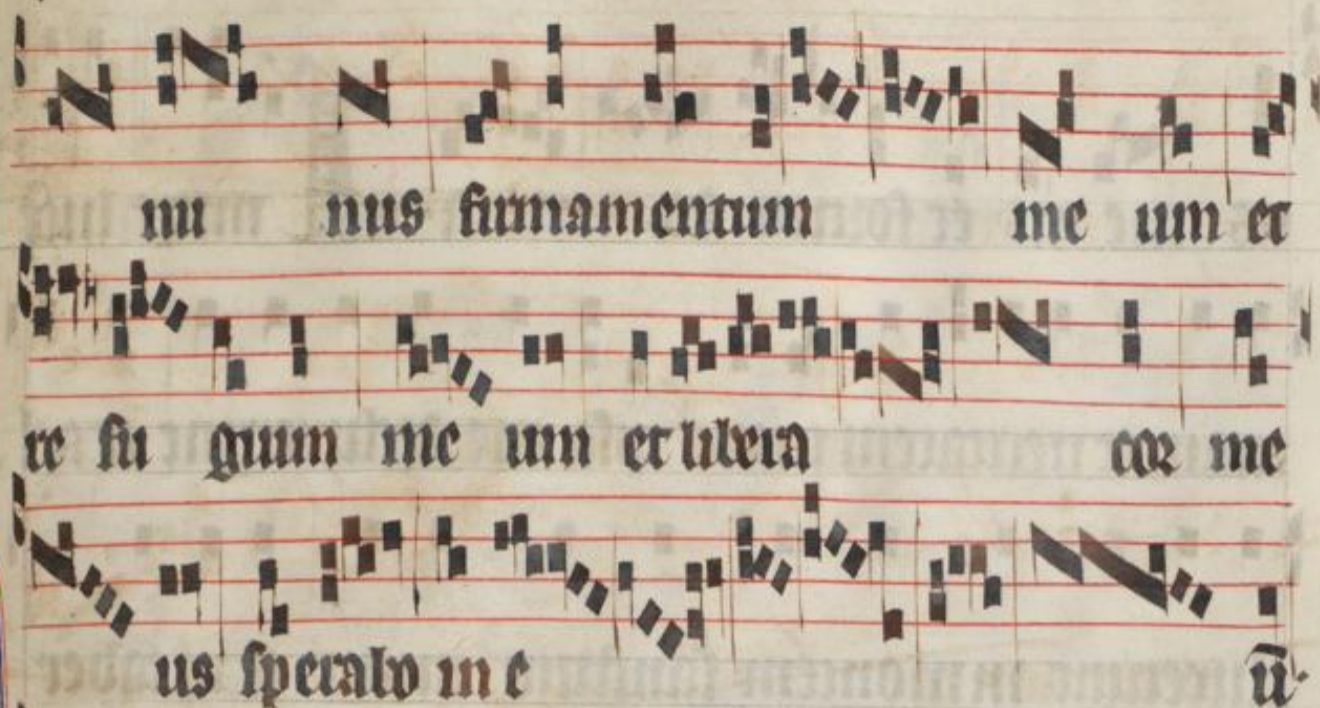 mi nus firmamentum me um et
re fu gium me um et libera cor me
us sperabo in e ū.